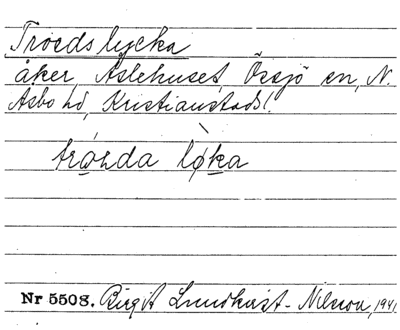 Troedslycka
åker, Åslehuset, Össjö en, N.
Åsbo hd, Kristianstads l.
Nr 5508. Birgit Lundkvist-Nilsson, 1941